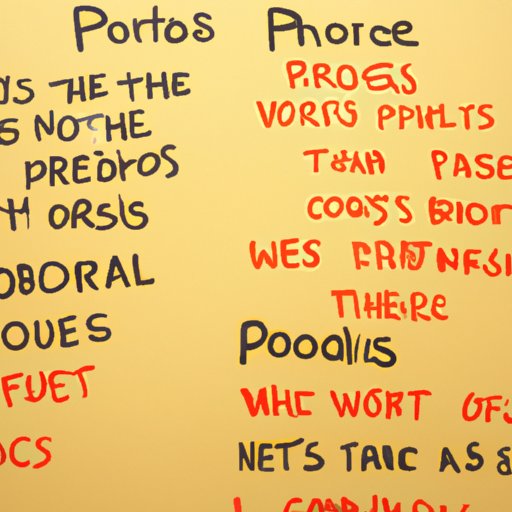 Portos
'S THE THE
S NOTHE
PREDROS
H ORSLS
OBORAL
OUES
FUET
OCS
Phorce
P.ROGS
VORTS PPHLTS
TSAH PASE
COOS'S BIOr
WES FRT NFSI
THERE
Poodlls
WHC WORT OFS
NETS TAIC AS